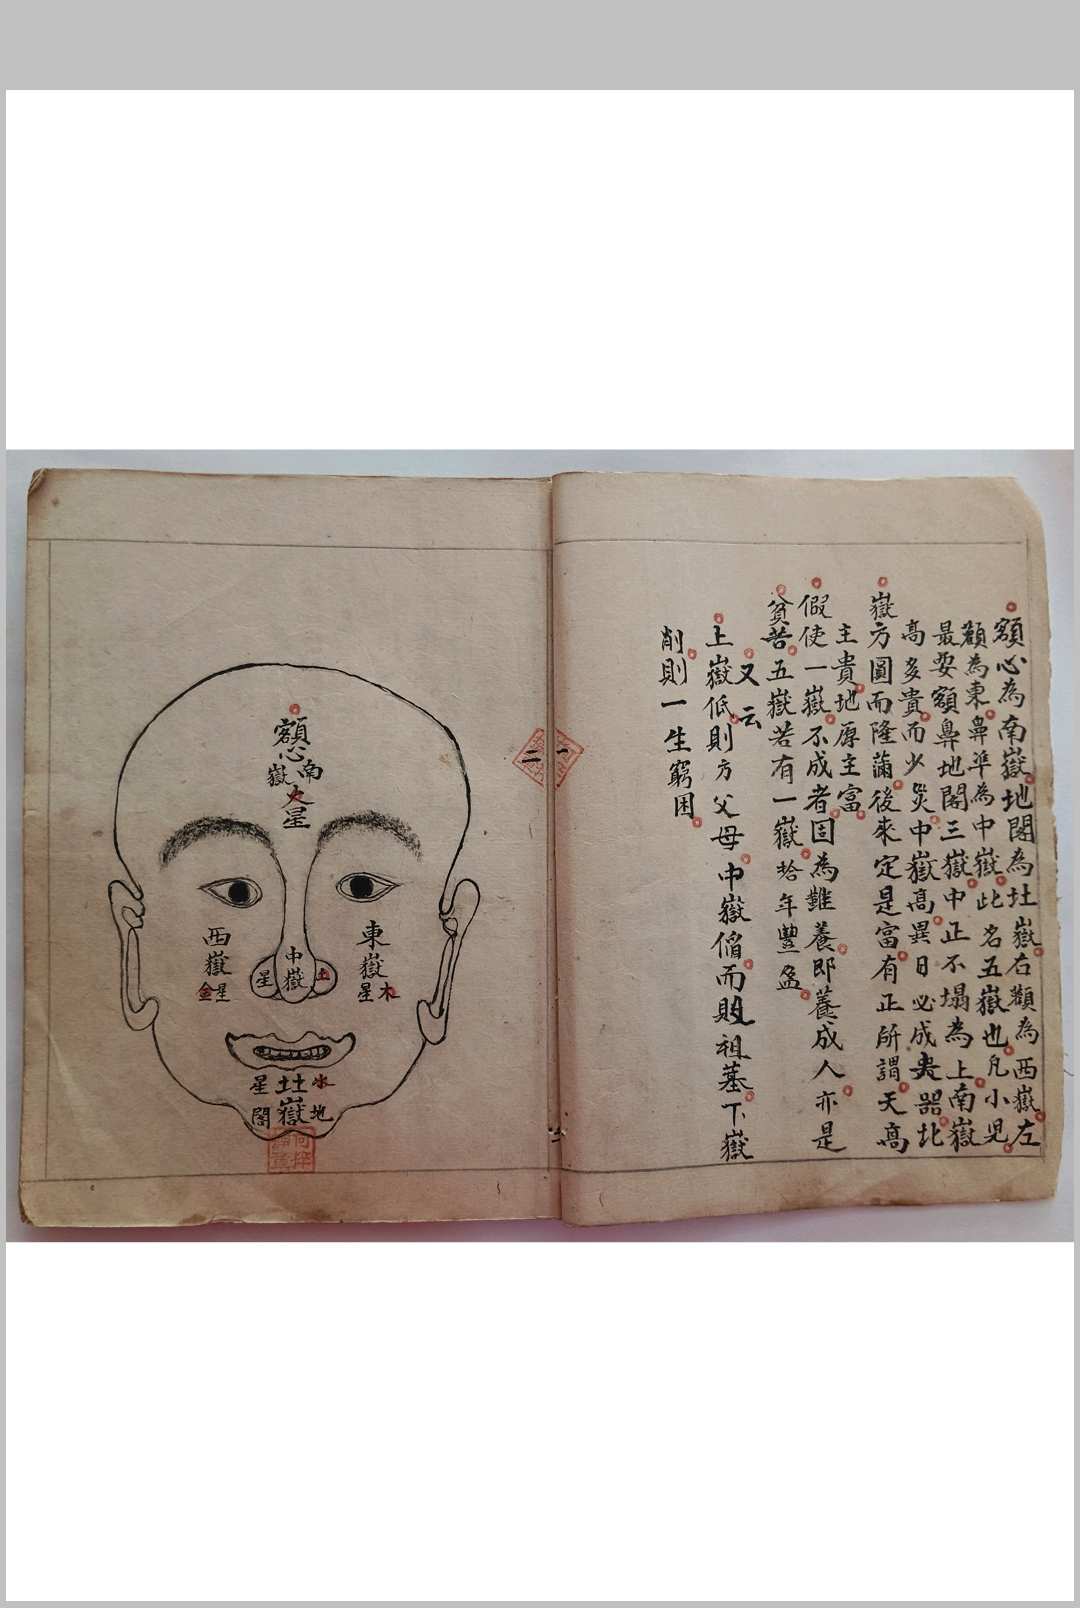 額心為南嶽地閣為北嶽右顴為西嶽左
顴為東鼻準為中嶽此名五嶽也凡小児
最要額鼻地閣三嶽中正不塌為上南嶽
高多貴而少災中嶽高異日必成貴器北
嶽方圓而隆滿後來定是富有正所謂天高
主貴地厚主富
假使一嶽不成者固為難養即養成人亦是
貧苦五嶽若有一嶽拾年豐盈
又云
上嶽低則方父母中嶽偕而則祖墓下嶽
削則一生窮困
一
二
額心
南嶽
火星
東嶽
木星
中嶽
土星
西嶽
金星
水星
北嶽
地閣